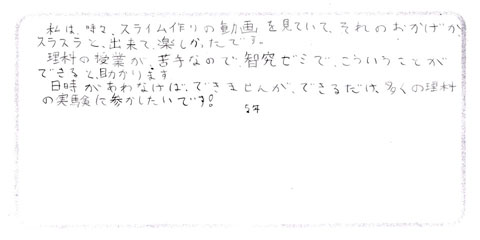 私は、時々、スライム作りの動画を見ていて、それのおかげか、
スラスラと、出来て、楽しかったです。
理科の授業が、苦手なので、智究ゼミで、こういうことが
できると、助かります
日時があわなければ、できませんが、できるだけ、多くの理科
の実験に参かしたいです!